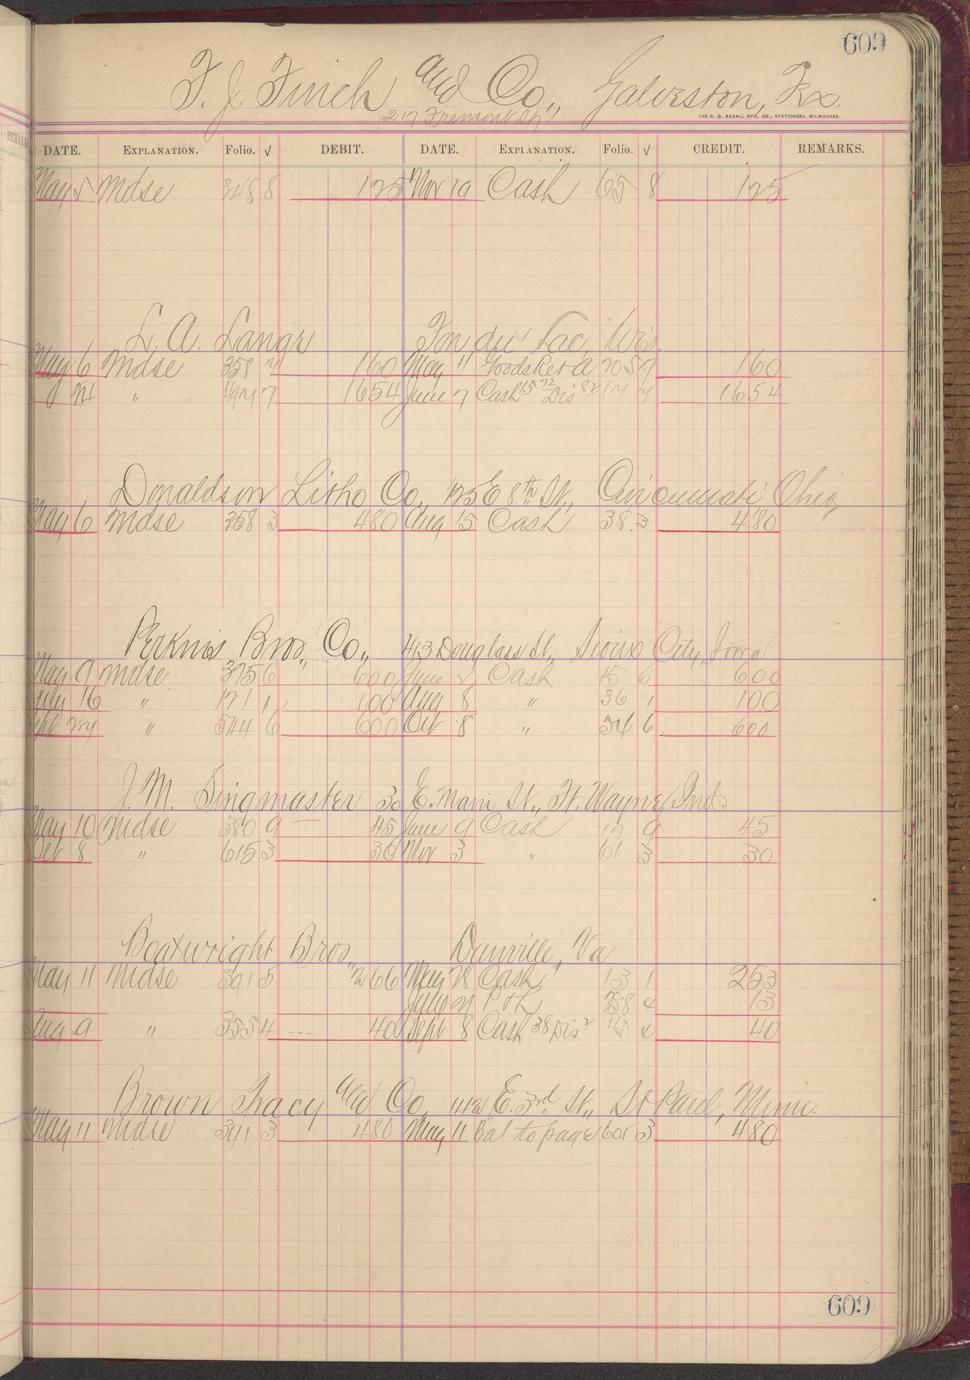 609
F. J. Finch and Co., Galveston, Tex.
217 Fremont St,
THE H. G. RAZALL MFG. CO., STATIONERS, MILWAUKEE.
DATE. EXPLANATION. Folio. √ DEBIT. DATE. EXPLANATION. Folio. √ CREDIT. REMARKS.
May 5 Mdse 348 8 125 Nov 19 Cash 65 8 125
L. A. Lange Fon du Lac, Wis.
May 6 Mdse 358 160 May 11 Goods Ret'd 205 7 160
" 24 " 7 1654 June 7 Cash 15 72 Dis 82 17 7 1654
Donaldson Litho Co., 125 E 8th St., Cincinnati Ohio,
May 6 Mdse 358 3 480 Aug 15 Cash 38 3 480
Perkins Bros., Co., 413 Douglass St., Sioux City, Iowa
May 9 Mdse 375 6 600 June 2 Cash 15 6 600
July 16 " 171 1 100 Aug 8 " 36 1 100
Sept 27 " 544 6 600 Oct 8 " 54 6 600
J. M. Singmaster 30 E. Main St., Ft. Wayne, Ind.
May 10 Mdse 380 9 45 June 9 Cash 17 9 45
Oct 8 " 615 3 30 Nov 3 " 61 3 30
Boatwright Bros., Danville, Va
May 11 Mdse 391 5 266 May 28 Cash 13 1 253
July 21 258 4 13
Aug 9 " 355 4 40 Sept 8 Cash 38 Dis 2 45 4 40
Brown Tracy and Co., 142 E. 3rd. St., St Paul, Minn.
May 11 Mdse 391 3 480 May 11 Bal to page 605 3 480
609